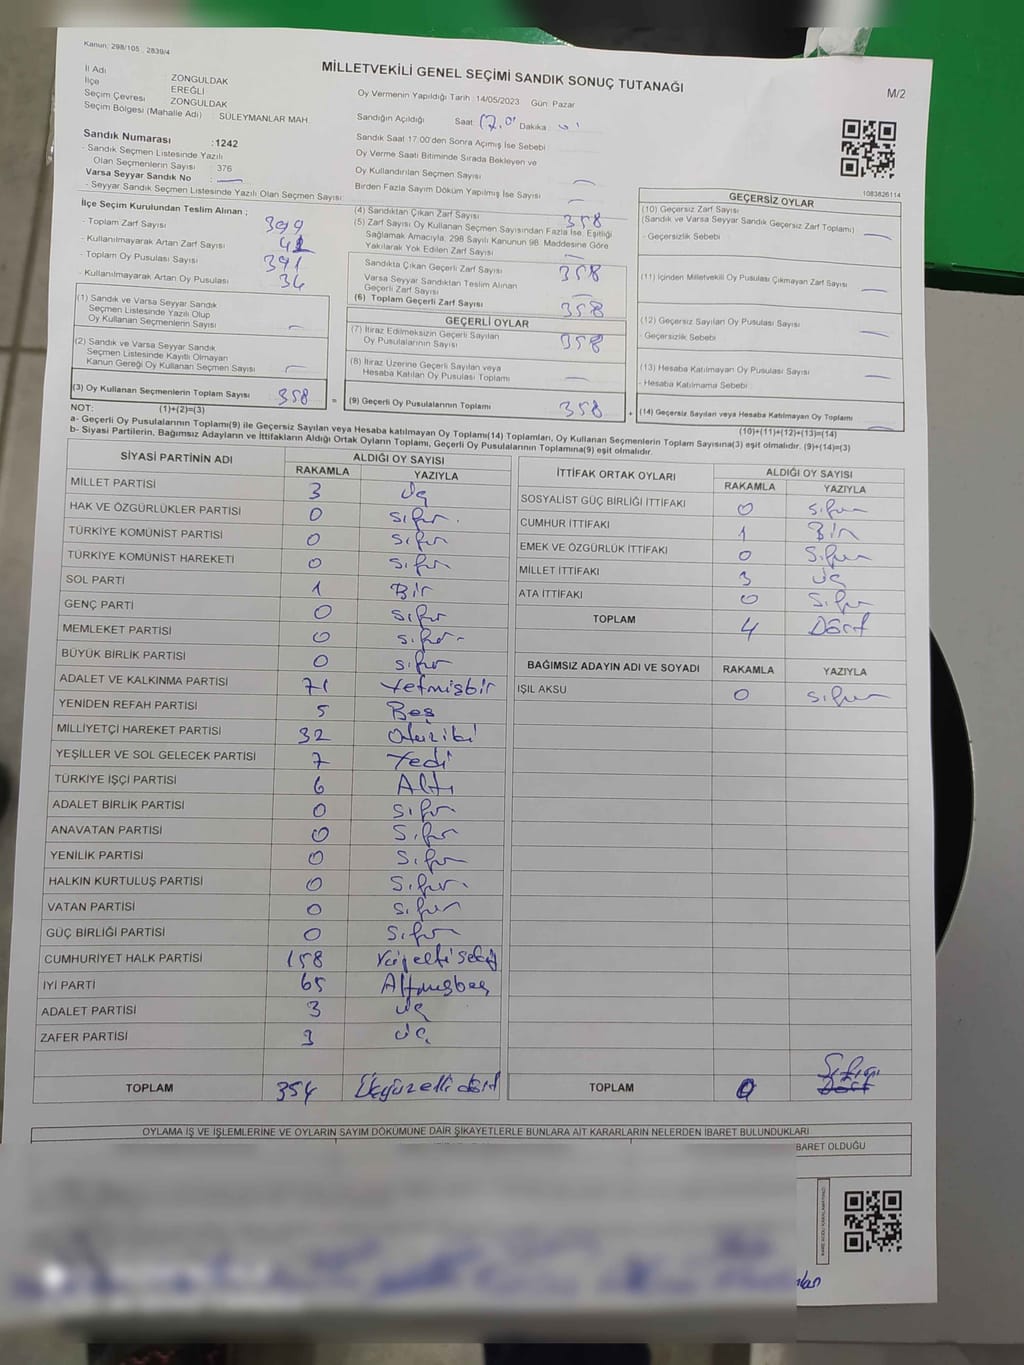 Kanun: 298/105 , 2839/4
MİLLETVEKİLİ GENEL SEÇİMİ SANDIK SONUÇ TUTANAĞI
M/2
İl Adı : ZONGULDAK
İlçe : EREĞLİ
Seçim Çevresi : ZONGULDAK
Seçim Bölgesi (Mahalle Adı) : SÜLEYMANLAR MAH
Sandık Numarası : 1242
- Sandık Seçmen Listesinde Yazılı
Olan Seçmenlerin Sayısı : 376
Varsa Seyyar Sandık No : —
- Seyyar Sandık Seçmen Listesinde Yazılı Olan Seçmen Sayısı:
Oy Vermenin Yapıldığı Tarih :14/05/2023 Gün: Pazar
Sandığın Açıldığı Saat: Dakika :
Sandık Saat 17:00'den Sonra Açımış İse Sebebi :
Oy Verme Saati Bitiminde Sırada Bekleyen ve
Oy Kullandırılan Seçmen Sayısı : —
Birden Fazla Sayım Döküm Yapılmış İse Sayısı : —
1083626114
İlçe Seçim Kurulundan Teslim Alınan ;
- Toplam Zarf Sayısı : 399
- Kullanılmayarak Artan Zarf Sayısı :
- Toplam Oy Pusulası Sayısı : 391
- Kullanılmayarak Artan Oy Pusulası : 34
(1) Sandık ve Varsa Seyyar Sandık
Seçmen Listesinde Yazılı Olup
Oy Kullanan Seçmenlerin Sayısı : —
(2) Sandık ve Varsa Seyyar Sandık
Seçmen Listesinde Kayıtlı Olmayan
Kanun Gereği Oy Kullanan Seçmen Sayısı : —
(3) Oy Kullanan Seçmenlerin Toplam Sayısı : 358
(4) Sandıktan Çıkan Zarf Sayısı : 358
(5) Zarf Sayısı Oy Kullanan Seçmen Sayısından Fazla İse, Eşitliği
Sağlamak Amacıyla, 298 Sayılı Kanunun 98. Maddesine Göre
Yakılarak Yok Edilen Zarf Sayısı : —
Sandıkta Çıkan Geçerli Zarf Sayısı : 358
Varsa Seyyar Sandıktan Teslim Alınan
Geçerli Zarf Sayısı : —
(6) Toplam Geçerli Zarf Sayısı : 358
GEÇERLİ OYLAR
(7) İtiraz Edilmeksizin Geçerli Sayılan
Oy Pusulalarının Sayısı : 358
(8) İtiraz Üzerine Geçerli Sayılan veya
Hesaba Katılan Oy Pusulası Toplamı : —
= (9) Geçerli Oy Pusulalarının Toplamı : 358
GEÇERSİZ OYLAR
(10) Geçersiz Zarf Sayısı
(Sandık ve Varsa Seyyar Sandık Geçersiz Zarf Toplamı) : —
- Geçersizlik Sebebi :
(11) İçinden Milletvekili Oy Pusulası Çıkmayan Zarf Sayısı : —
(12) Geçersiz Sayılan Oy Pusulası Sayısı : —
- Geçersizlik Sebebi :
(13) Hesaba Katılmayan Oy Pusulası Sayısı : —
- Hesaba Katılmama Sebebi :
+ (14) Geçersiz Sayılan veya Hesaba Katılmayan Oy Toplamı : —
NOT: (1)+(2)=(3)
(10)+(11)+(12)+(13)=(14)
a- Geçerli Oy Pusulalarının Toplamı(9) ile Geçersiz Sayılan veya Hesaba katılmayan Oy Toplamı(14) Toplamları, Oy Kullanan Seçmenlerin Toplam Sayısına(3) eşit olmalıdır. (9)+(14)=(3)
b- Siyasi Partilerin, Bağımsız Adayların ve İttifakların Aldığı Ortak Oyların Toplamı, Geçerli Oy Pusulalarının Toplamına(9) eşit olmalıdır.
SİYASİ PARTİNİN ADI ALDIĞI OY SAYISI
RAKAMLA YAZIYLA
MİLLET PARTİSİ 3 Üç
HAK VE ÖZGÜRLÜKLER PARTİSİ 0 Sıfır
TÜRKİYE KOMÜNİST PARTİSİ 0 Sıfır
TÜRKİYE KOMÜNİST HAREKETİ 0 Sıfır
SOL PARTİ 1 Bir
GENÇ PARTİ 0 Sıfır
MEMLEKET PARTİSİ 0 Sıfır
BÜYÜK BİRLİK PARTİSİ 0 Sıfır
ADALET VE KALKINMA PARTİSİ 71 Yetmişbir
YENİDEN REFAH PARTİSİ 5 Beş
MİLLİYETÇİ HAREKET PARTİSİ 32 Otuziki
YEŞİLLER VE SOL GELECEK PARTİSİ 7 Yedi
TÜRKİYE İŞÇİ PARTİSİ 6 Altı
ADALET BİRLİK PARTİSİ 0 Sıfır
ANAVATAN PARTİSİ 0 Sıfır
YENİLİK PARTİSİ 0 Sıfır
HALKIN KURTULUŞ PARTİSİ 0 Sıfır
VATAN PARTİSİ 0 Sıfır
GÜÇ BİRLİĞİ PARTİSİ 0 Sıfır
CUMHURİYET HALK PARTİSİ 158 Yüzellisekiz
İYİ PARTİ 65 Altmışbeş
ADALET PARTİSİ 3 Üç
ZAFER PARTİSİ 3 Üç
TOPLAM 354 Üçyüzellidört
İTTİFAK ORTAK OYLARI ALDIĞI OY SAYISI
RAKAMLA YAZIYLA
SOSYALİST GÜÇ BİRLİĞİ İTTİFAKI 0 Sıfır
CUMHUR İTTİFAKI 1 Bir
EMEK VE ÖZGÜRLÜK İTTİFAKI 0 Sıfır
MİLLET İTTİFAKI 3 Üç
ATA İTTİFAKI 0 Sıfır
TOPLAM 4 Dört
BAĞIMSIZ ADAYIN ADI VE SOYADI RAKAMLA YAZIYLA
IŞIL AKSU 0 Sıfır
TOPLAM 0
OYLAMA İŞ VE İŞLEMLERİNE VE OYLARIN SAYIM DÖKÜMÜNE DAİR ŞİKAYETLERLE BUNLARA AİT KARARLARIN NELERDEN İBARET BULUNDUKLARI
BARET OLDUĞU